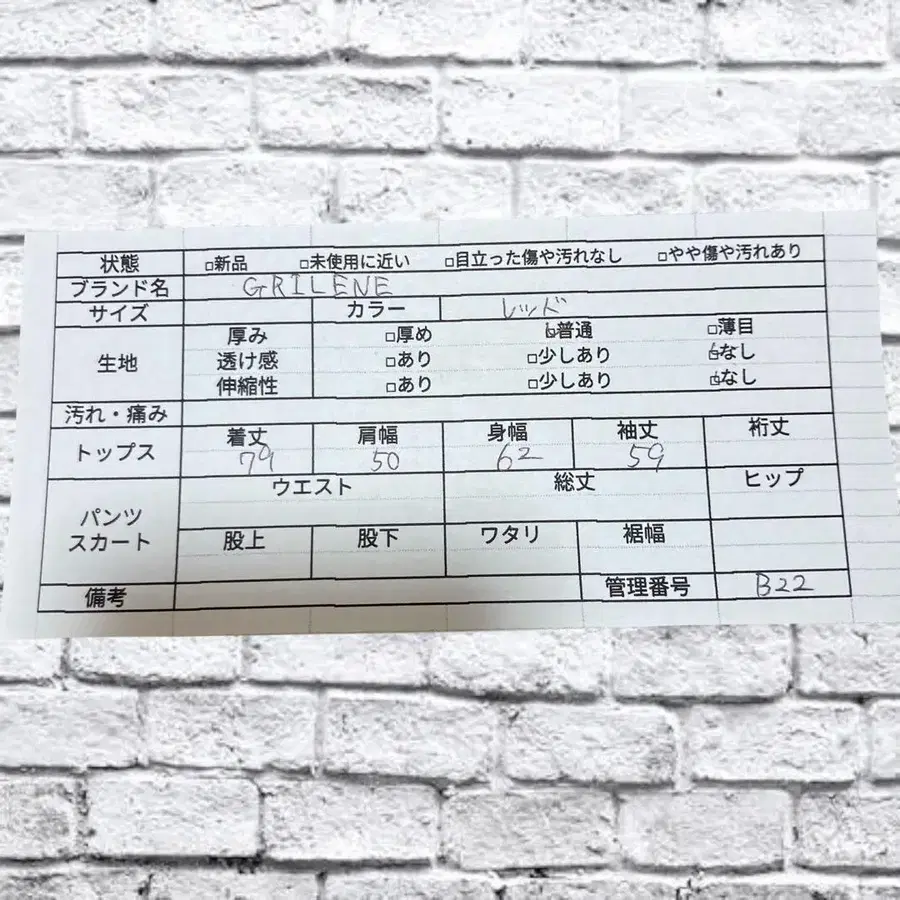 状態 □新品 □未使用に近い □目立った傷や汚れなし □やや傷や汚れあり
ブランド名 GRILENE
サイズ カラー レッド
生地 厚み □厚め □普通 □薄目
透け感 □あり □少しあり □なし
伸縮性 □あり □少しあり □なし
汚れ・痛み
トップス 着丈 肩幅 身幅 袖丈 裄丈
79 50 62 59
パンツ スカート ウエスト 総丈 ヒップ
股上 股下 ワタリ 裾幅
備考 管理番号 B22